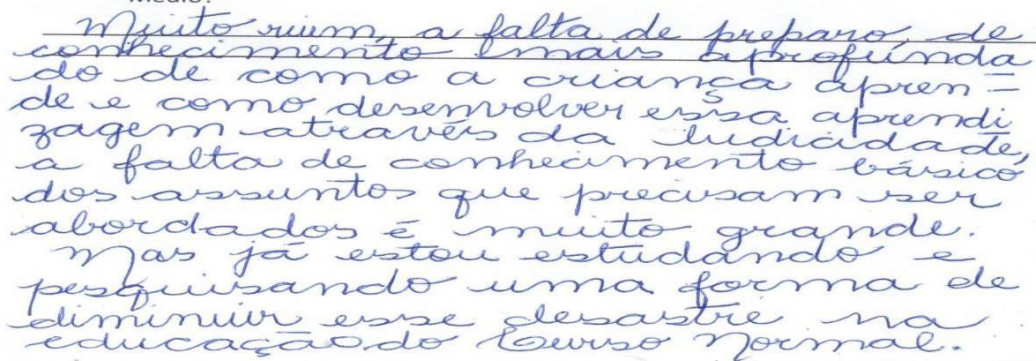 Médio?
Muito ruim, a falta de preparo, de
conhecimento mais aprofunda
do de como a criança apren -
de e como desenvolver essa aprendi
zagem através da ludicidade,
a falta de conhecimento básico
dos assuntos que precisam ser
abordados é muito grande.
Mas já estou estudando e
pesquisando uma forma de
diminuir esse desastre na
educação do Curso Normal.